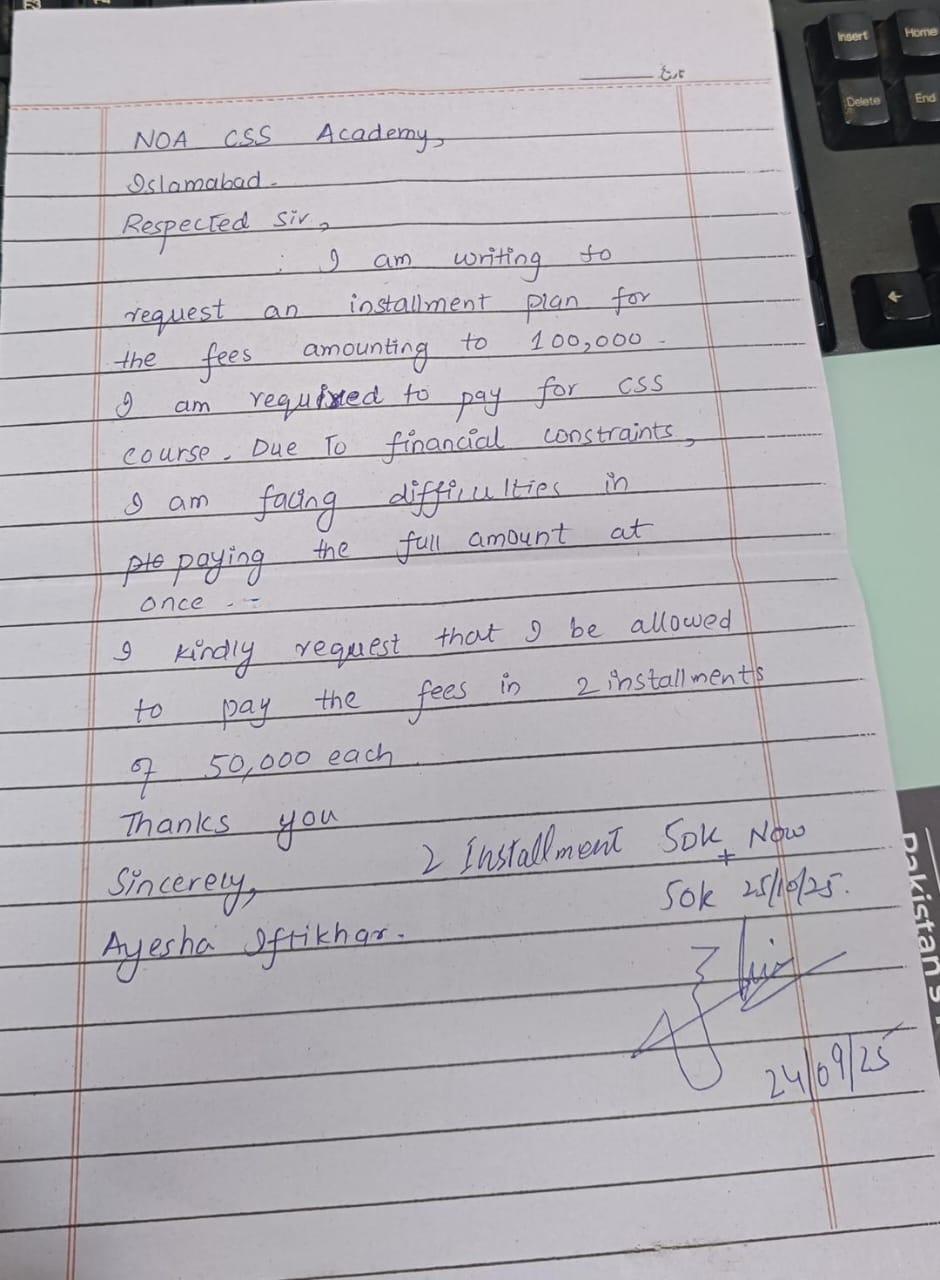 تاریخ
NOA CSS Academy,
Islamabad.
Respected Sir,
I am writing to
request an installment plan for
the fees amounting to 100,000.
I am required to pay for CSS
course. Due To financial constraints,
I am facing difficulties in
paying the full amount at
once.
I kindly request that I be allowed
to pay the fees in 2 installments
of 50,000 each
Thanks you
Sincerely,
Ayesha Iftikhar.
2 Installment 50k Now
+
50k 25/10/25.
24/09/25
Insert
Home
Delete
End
Pakistan's